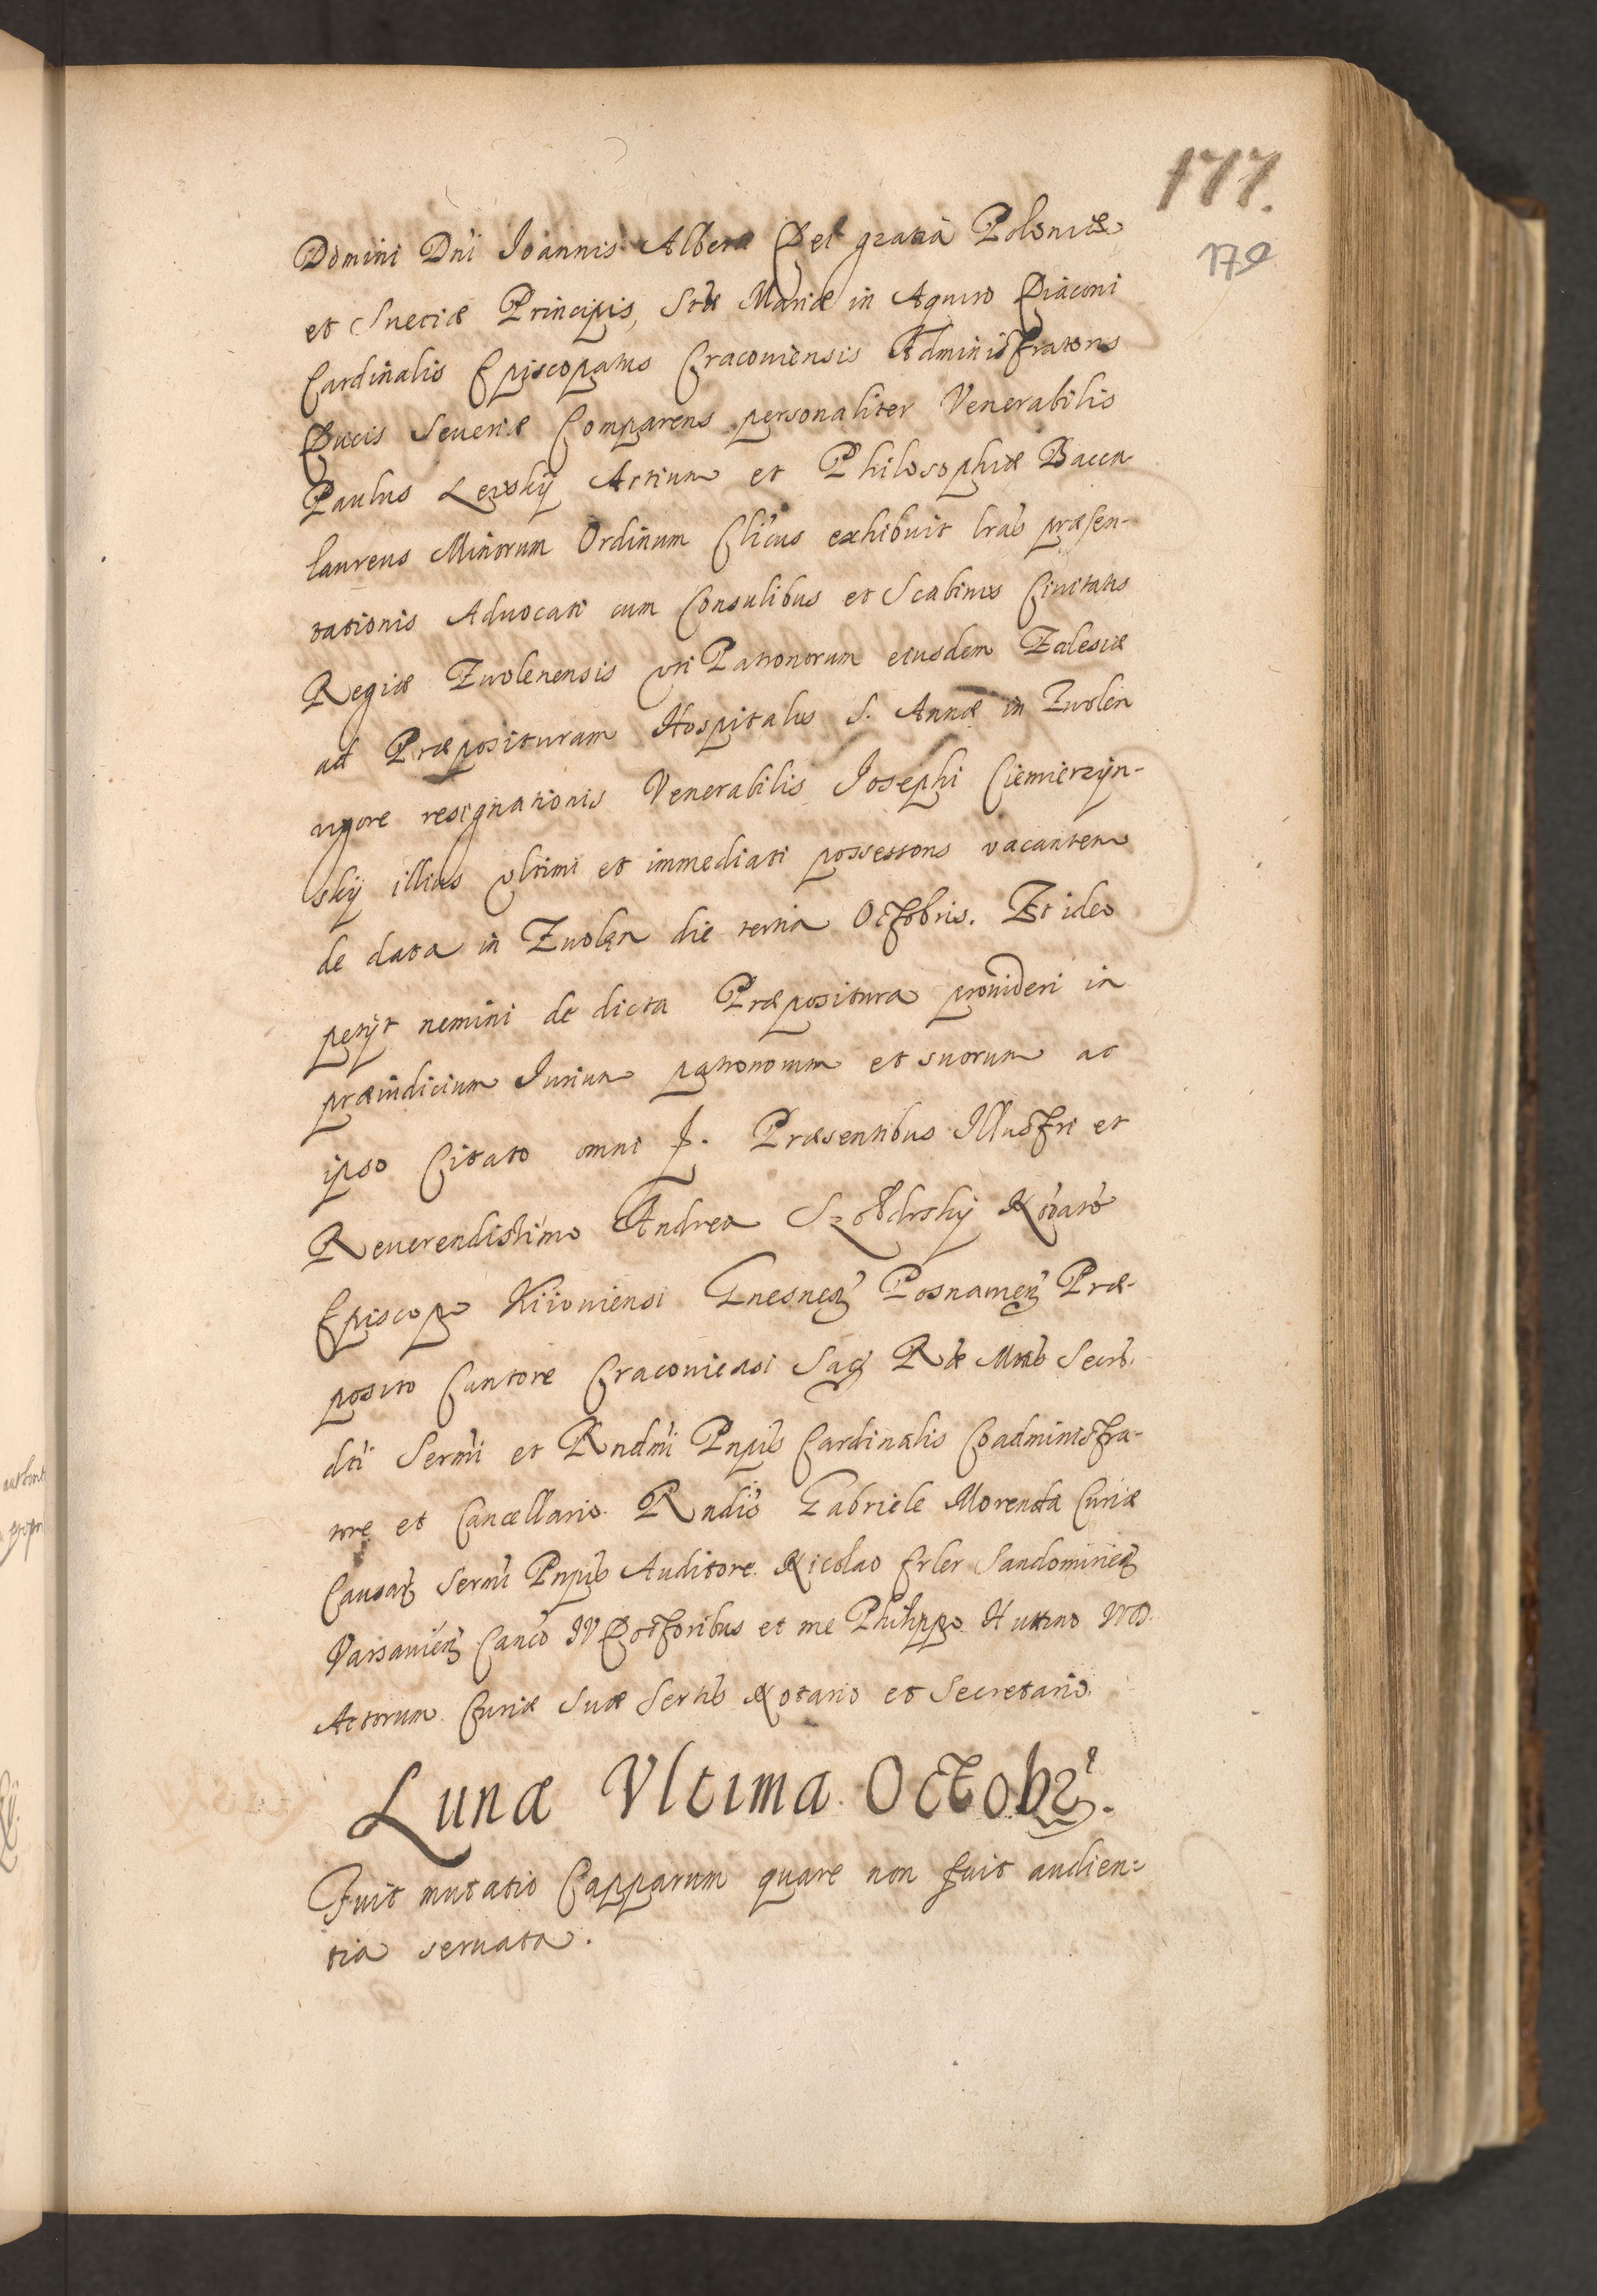 177.
179
Domini Dni Ioannis Alberti Dei gratia Poloniæ
et Sueciæ Principis, Stæ Mariæ in Aquiro Diaconi
Cardinalis Episcopatus Cracouiensis Administratoris
Ducis Seueriæ Comparens personaliter Venerabilis
Paulus Lewskÿ Artium et Philosophiæ Bacca
laureus Minorum Ordinum Clicus exhibuit lras præsen-
tationis Aduocati cum Consulibus et Scabinis Ciuitatis
Regiæ Zwolenensis vti Patronorum eiusdem Ecclesiæ
ad Præposituram Hospitalis S. Annæ in Zwolen
vigore resignationis Venerabilis Josephi Ciemierzÿn-
skÿ illius vltimi et immediati possessoris vacantem
de data in Zwolen die tertia Octobris. Et ideo
petÿt nemini de dicta Præpositura prouideri in
præiudicium Iurium patronorum et suorum ac
ipso Citato omni . Præsentibus Illustri et
Reuerendissimo Andrea Szołdrskÿ Noiato
Episcopo Kiiouiensi Gnesnen Posnanien Præ-
posito Cantore Cracouiensi Sac Ræ Mtis Secrio
dti Sermi et Rndmi Pnpis Cardinalis Coadministra-
tore et Cancellario. Rndis Gabriele Morenda Curiæ
Causar Sermi Pnpis Auditore. Nicolao Erler Sandomirien
Varsauien Canco IV Doctoribus et me Philippo Huttino
Actorum Curiæ Suæ Sertis Notario et Secretario.
Lunæ Vltima Octobr.
Fuit mutatio Capparum quare non fuit audien-
tia seruata.